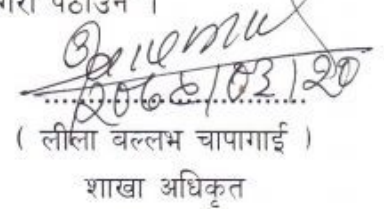 गरी पठाउने ।
२०६८/०३/२०
( लीला बल्लभ चापागाई )
शाखा अधिकृत